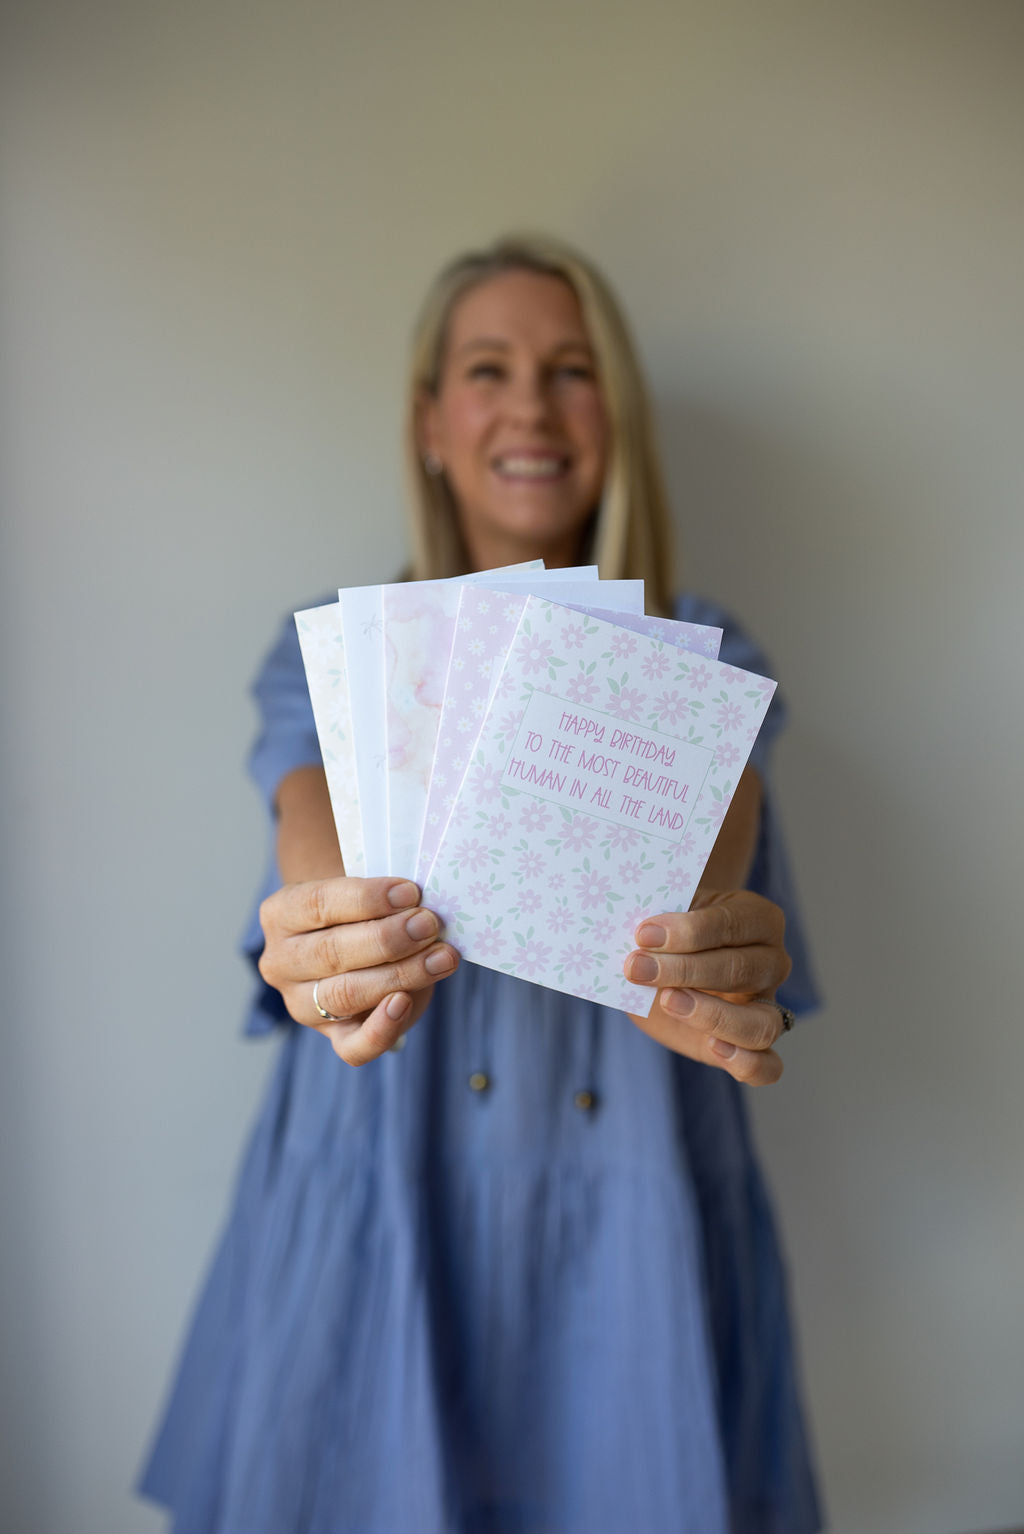 HAPPY BIRTHDAY
TO THE MOST BEAUTIFUL
HUMAN IN ALL THE LAND